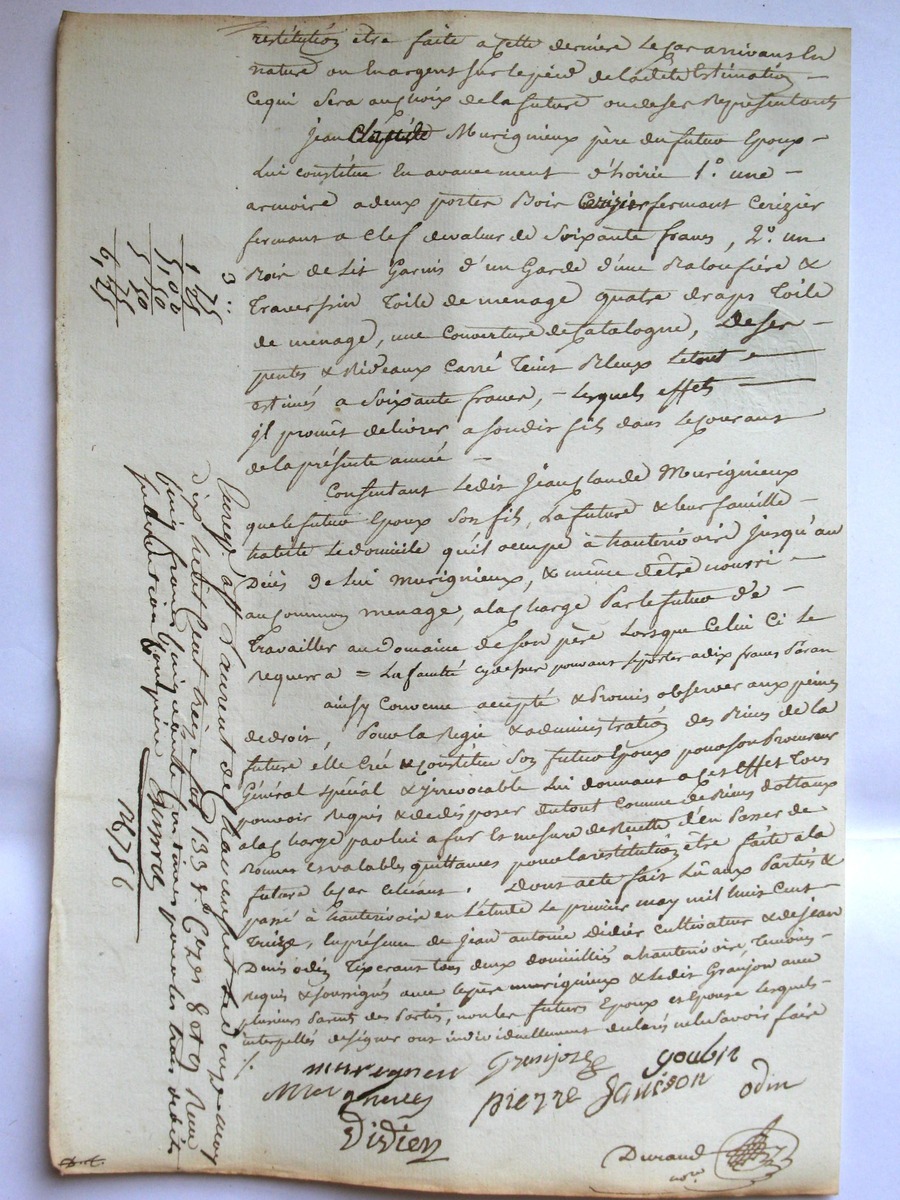 restitution être faite a cette derniere le cas arrivant En
nature ou En argent sur le pied de ladite Estimation —
Ce qui Sera au choix de la future ou de ses Représentants
Jean Claude Murignieux père du futur Epoux —
Lui constitue En avancement d'hoirie 1.o une —
armoire a deux portes Bois Cerizier fermant Cerizier
fermant a Clef de valeur de Soixante francs, 2.o un
Bois de Lit Garnis d'un Garde d'une Baloufière &
Traversin Toile de menage quatre draps Toile
de ménage, une Couverture de Catalogne, Des ser-
pentes & Rideaux Carré Teint Bleux Le tout —
estimés a Soixante francs, — Lesquels effets —
il promet de livrer a son dit fils dans le Courant
de la présente année —
Consentant Ledit Jean Claude Murignieux
que le futur Epoux Son fils, La future & leur famille —
habite le domicile qu'il occupe à hauterivoire Jusqu'au
Décès de Lui Murignieux, & même d'être nourri —
au Commun menage, a la Charge Par le futur de —
Travailler au Domaine de Son père Lorsque Celui Ci le
requerra = La faculté cy dessus pouvant se porter a dix francs Par an
ainsy Convenu accepté & Promis observer aux peines
de droit, Pour la Regie & administration des Biens de la
future elle Crée & Constitue Son futur Epoux pour son Procureur
Général spécial & irrevocable Lui donnant a Cet Effet Tous
pouvoir Requis & de disposer du tout Comme de Biens dottaux
a la Charge par lui a fur et mesure de Recette d'en Passer de
Bonnes et valables quittances pour la restitution être faite a la
future le cas Echéant. Dont acte fait Lû aux Parties &
passé à hauterivoire en L'étude Le premier may mil huit Cent
Treize, En présence de Jean antoine Didier Cultivateur & de Jean
Denis odin Tisserant tous deux domiciliés a hauterivoire, Temoins —
Requis & Soussignés avec le père murignieux & Ledit Granjon avec
plusieurs Parents des Parties, non les futurs Epoux et Epouse Lesquels —
interpellés de signer ont individuellement déclarés ne le Savoir faire
murignieu Granjon goubin
murignieux pierre odin
Didier
Durand
no.re
3:
1,75
5,00 5,50
5 50
6,25
Enreg. a St Laurent de Chamousset le
dix huit Cent treize
cinq francs cinquante Centimes pour les trois droits
1675 6